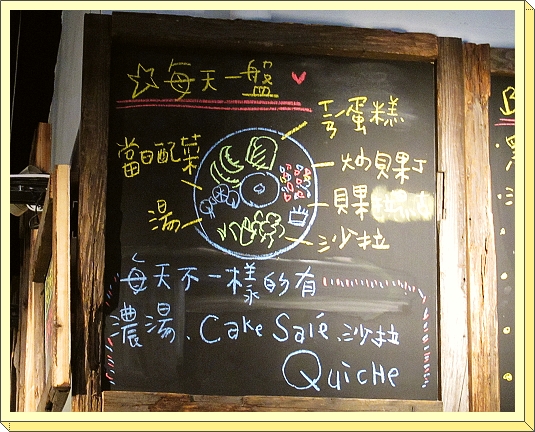 ☆每天一盤♥
蛋糕
當日配菜
炒貝果丁
湯
貝果
沙拉
每天不一樣的有
濃湯、Cake Salé、沙拉
Quiche